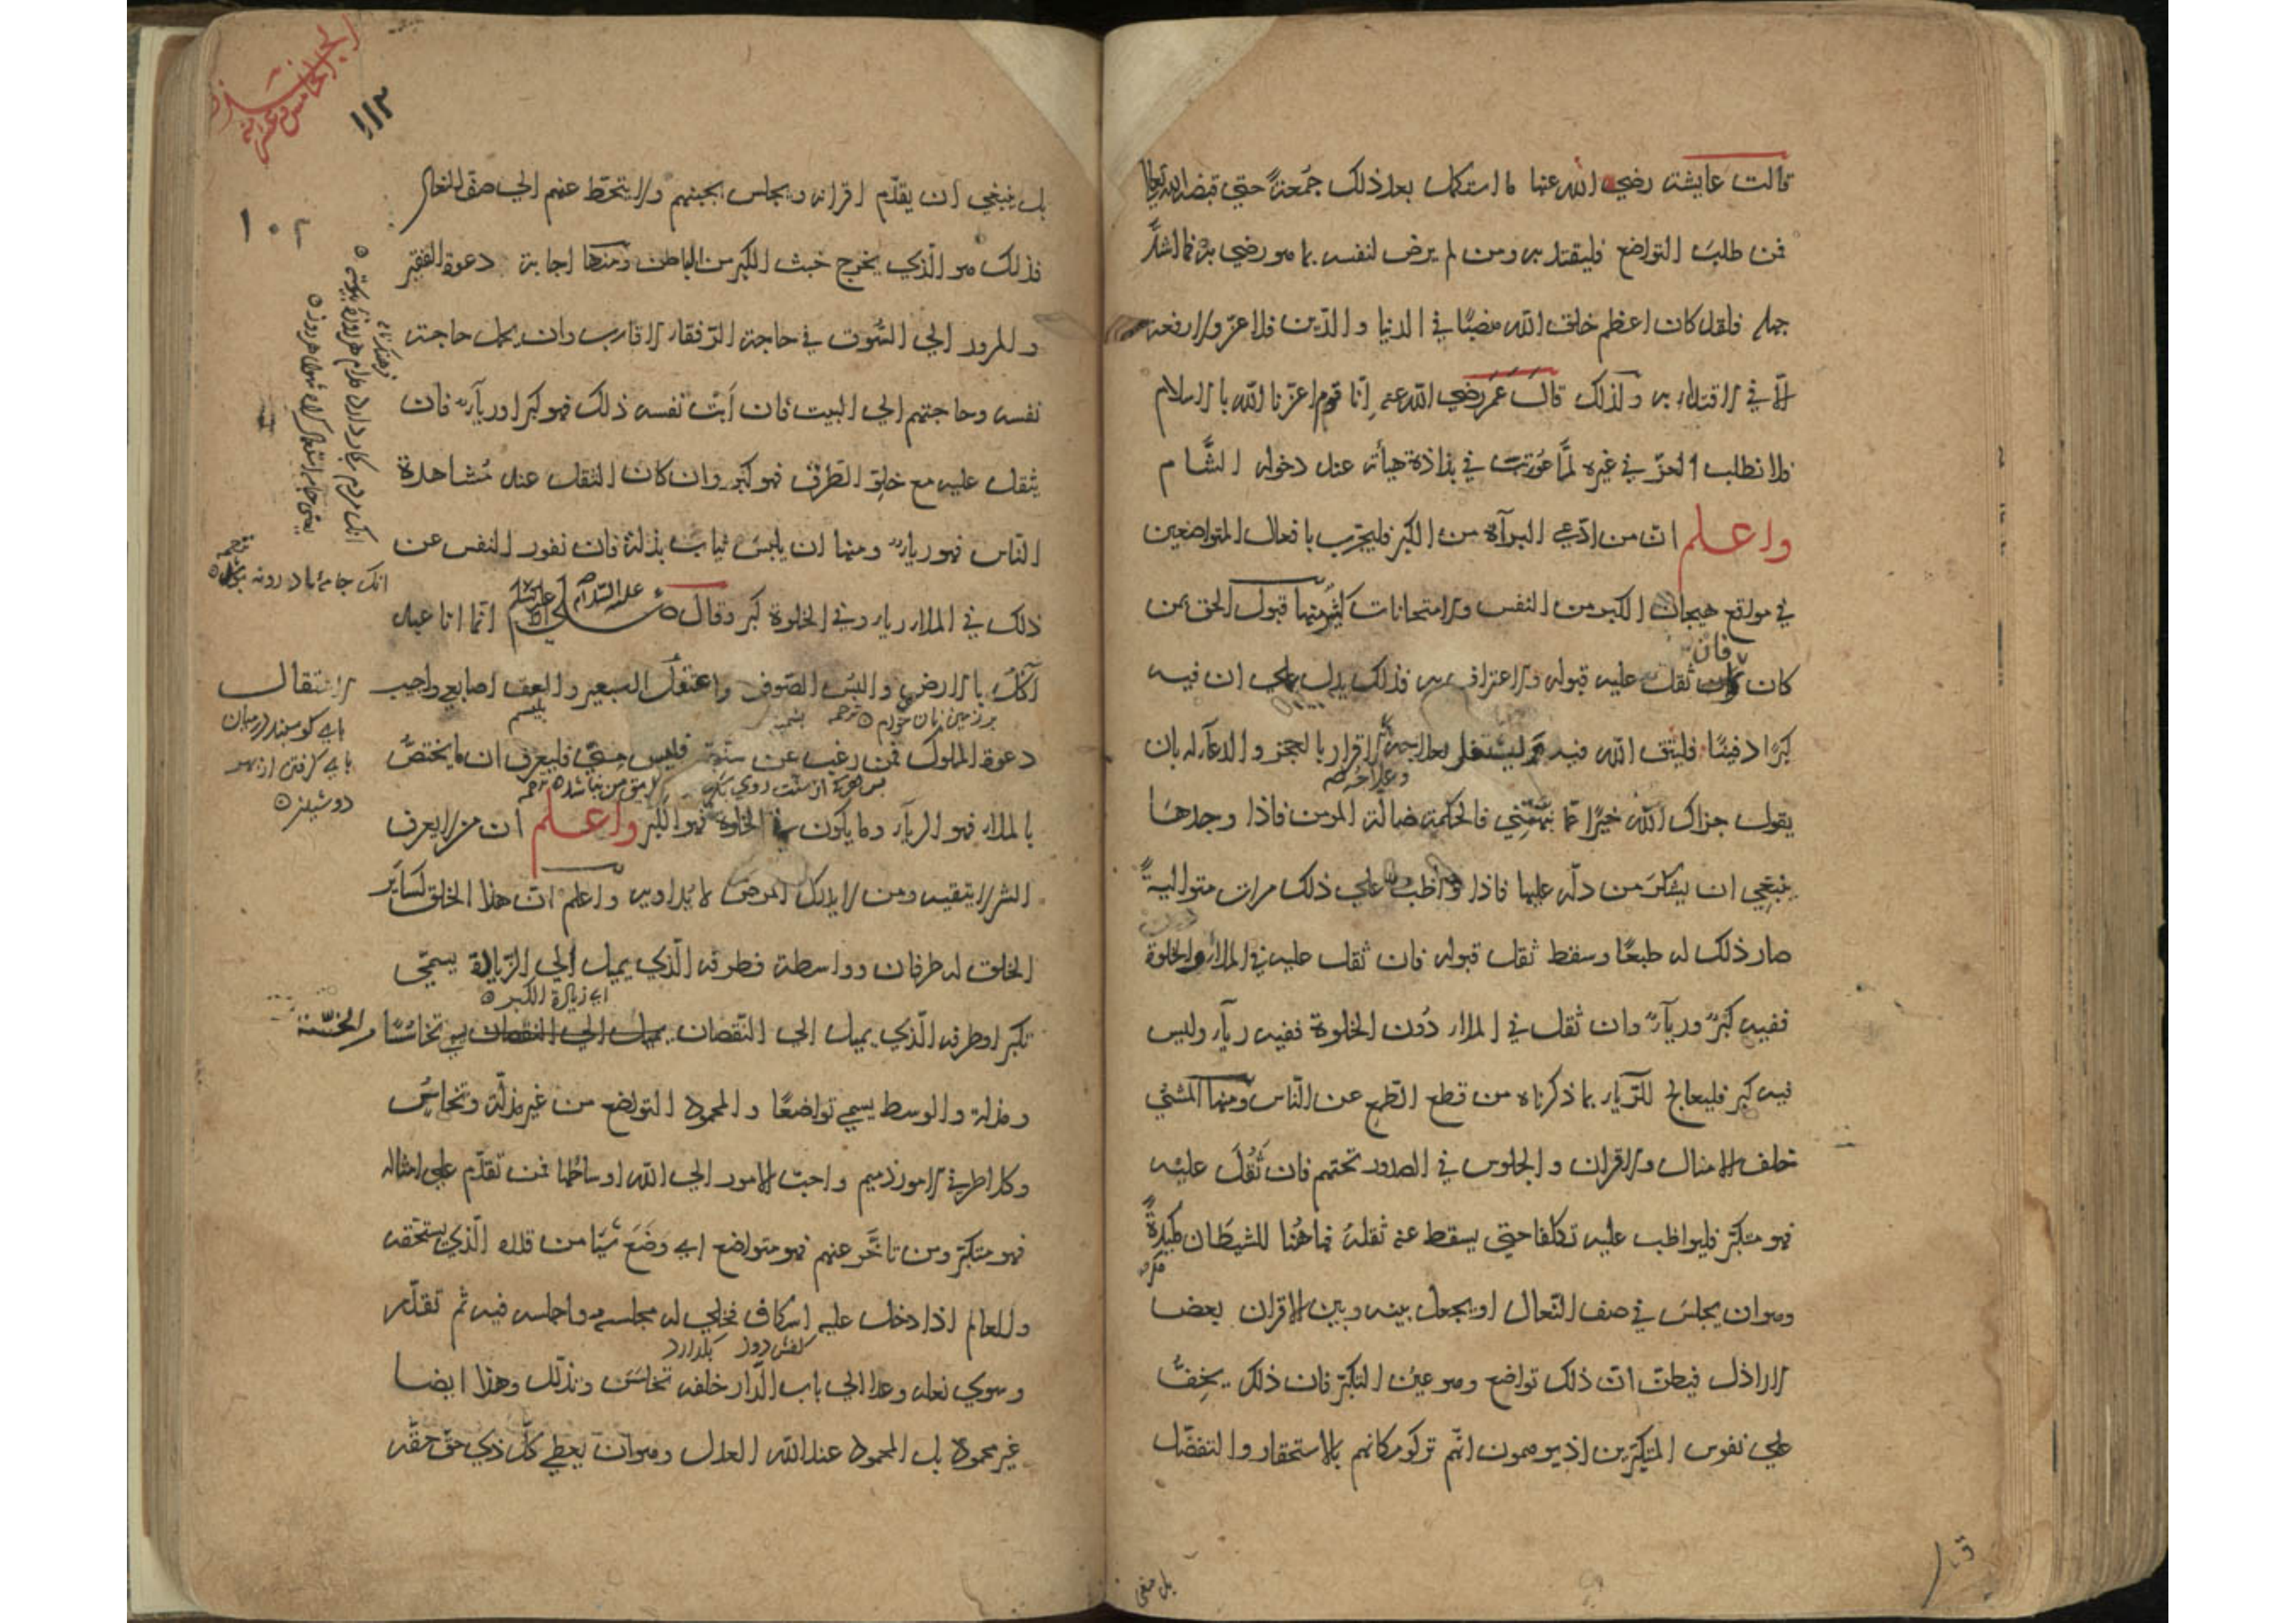 قالت عايشة رضي الله عنها ما استكمل بعد ذلك جمعة حتى قبضه الله تعالى
فمن طلب التواضع فليقتد به ومن لم يرض لنفسه بما هو رضي به فما اشدّ
جهله فلقد كان اعظم خلق الله منصبًا في الدنيا والدّين فلا عزّ ولا رفعة
الّا في الاقتداء به ولذلك قال عمر رضي الله عنه انّا قوم اعزّنا الله بالاسلام
فلا نطلب العزّ في غيره لمّا عوتب في بذاذة هيأته عند دخوله الشّام
واعلم ان من ادّعي البرآءة من الكبر فليجرب بافعال المتواضعين
في مواقع هيجان الكبر من النفس والامتحانات كثيرة منها قبول الحق ممن
فان
كان ثقل عليه قبوله والاعتراف به فذلك يدل علي ان فيه
كبرًا دفينًا فليتق الله فيه الاقرار بالعجز والدعآء له بان
يقول جزاك الله خيرًا مما نبّهتني فالحكمة ضالة المومن فاذا وجدها
ينبغي ان يشكر من دلّه عليها فاذا واظب علي ذلك مرات متوالية
صار ذلك له طبعًا وسقط ثقل قبوله فان ثقل عليه في الملاء والخلوة
ففيه كبرٌ وريآءٌ وان ثقل في الملاء دون الخلوة ففيه ريآء وليس
فيه كبر فليعالج للرّياء بما ذكرناه من قطع الطّمع عن النّاس ومنها المشي
خلف الامثال والاقران والجلوس في الصدور تحتهم فان ثقل عليه
فهو متكبّر فليواظب عليه تكلفا حتى يسقط عنه ثقله فهاهنا للشيطان مكيدةً
مكر
وهو ان يجلس في صف النّعال او يجعل بينه وبين الاقران بعض
الاراذل فيظن انّ ذلك تواضع وهو عين التكبّر فان ذلك يخفّ
علي نفوس المتكبّرين اذ يوهمون انهم تركو مكانهم بالاستحقار والتفضّل
بل ينبغي
الجزء الخامس
١١٢
١٠٢
بل ينبغي ان يقدّم اقرانه ويجلس بجنبهم ولا ينحط عنهم الي صف النعال
فذلك هو الّذي يخرج خبث الكبر من الباطن ومنها اجابة دعوة الفقير
والمرور الي السّوق في حاجة الرّفقاء الاقارب وان يحمل حاجة
نفسه وحاجتهم الي البيت فان ابت نفسه ذلك فهو كبر او ريآء فان
يثقل عليه مع خلوّ الطّرق فهو كبر وان كان الثقل عند مشاهدة
النّاس فهو رياء ومنها ان يلبس ثياب بذلة فان نفور النفس عن
ذلك في الملاء رياء وفي الخلوة كبر وقال عليه السّلام انّما انا عبد
آكل بالارض والبس الصّوف واعتقل البعير والعق اصابعي واجيب
بر زمين نان خورم ترجمه
دعوة المملوك فمن رغب عن سنّتي فليس منّي فليعرف ان ما يختصّ
بس هركه از سنت روي
بالملاء فهو الريآء وما يكون في الخلوة فهو الكبر واعلم ان من لا يعرف
الشر لا يتقيه ومن لا يدرك المرض لا يداويه واعلم انّ هذا الخلق كساير
الخلق له طرفان وواسطة فطرفه الّذي يميل الي الزّيادة يسمّي
اي زيادة الكبر
تكبرا وطرفه الّذي يميل الي النّقصان يميل الي النقصان تخاسسًا والخسّة
ومذلة والوسط يسمي تواضعًا والمحمود التواضع من غير مذلّة وتخاسس
وكلا طرفي الامور ذميم واحبّ الامور الي الله اوساطها فمن تقدّم علي امثاله
فهو متكبّر ومن تاخّر عنهم فهو متواضع اي وضع شيًا من قدره الّذي يستحقه
والعالم اذا دخل عليه اسكاف فخلي له مجلسه واجلسه فيه ثم تقدّم
كفش دوز
وسوي نعله وغدا الي باب الدّار خلفه تخاسس وتذلّل وهذا ايضا
غير محمود بل المحمود عند الله العدل وهو ان يعطي كلّ ذي حقّ حقّه
الاعتقال
پاي كوسپند درميان
پاي كرفتن از بهر
دوشيدن